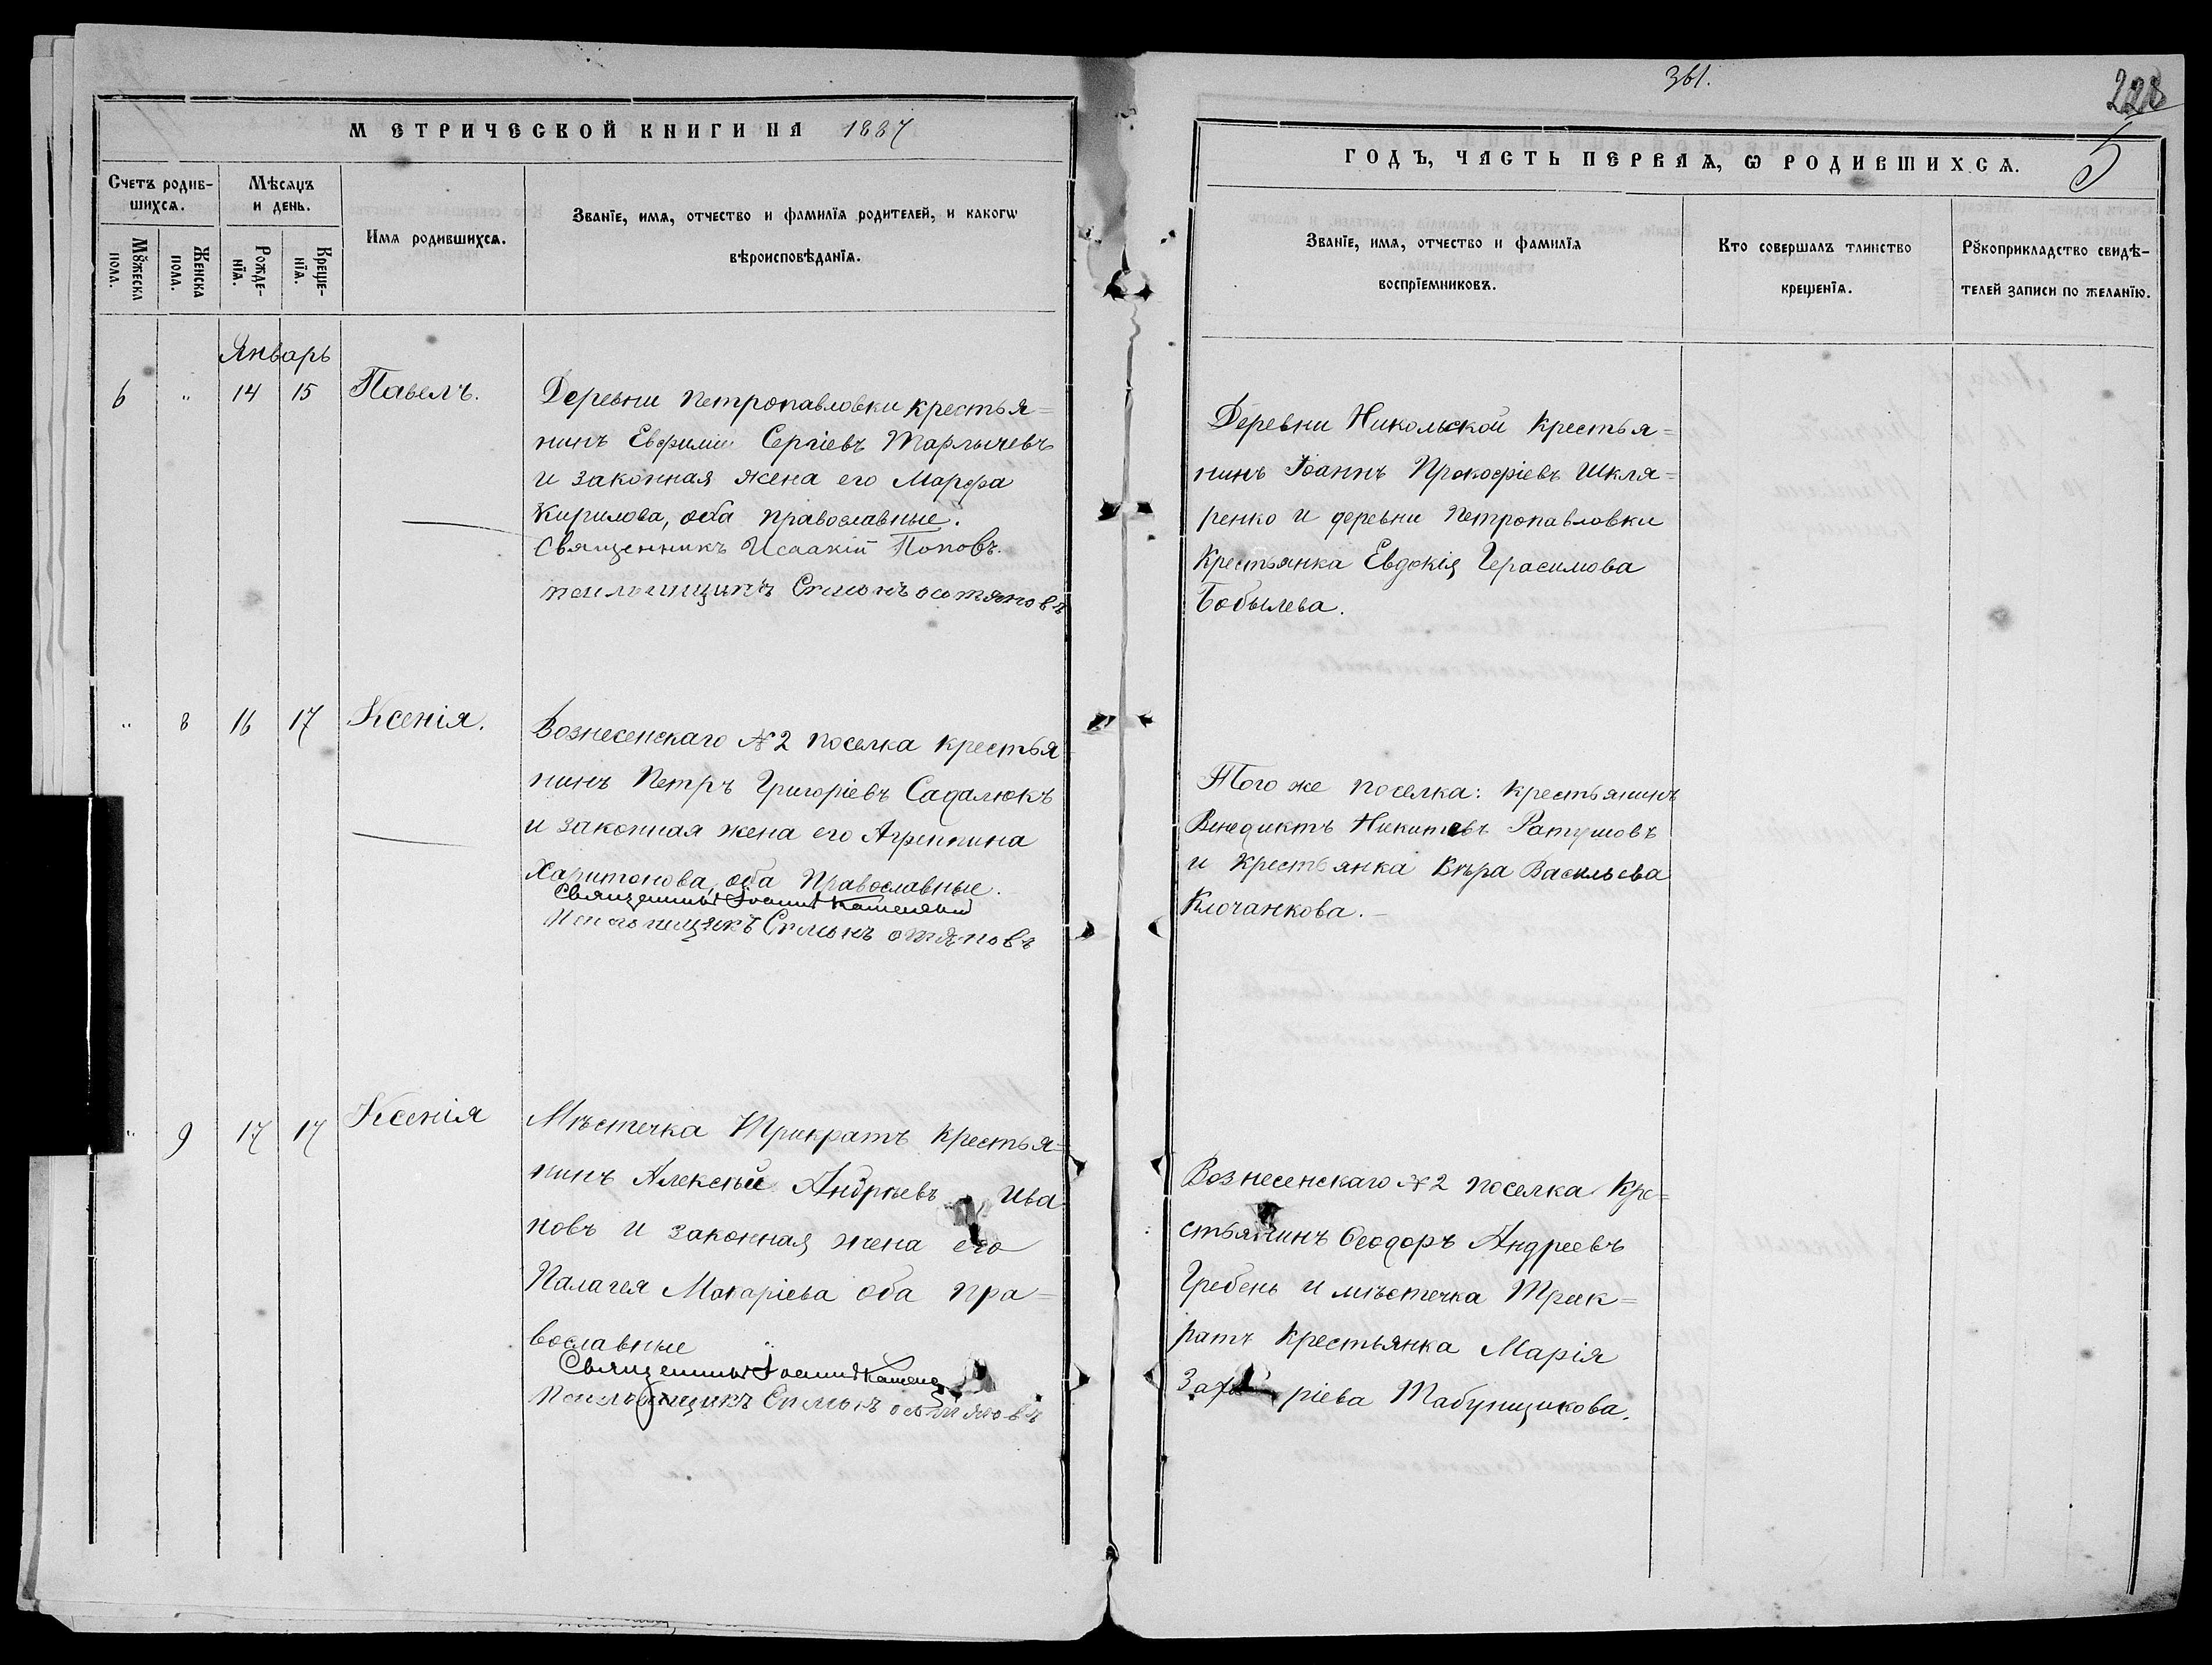 МЕТРИЧЕСКОЙ КНИГИ НА 1887
Счетъ родив-
шихся.
Мѣсяцъ
и день.
Имя родившихся.
Званїе, имя, отчество и фамилїя родителей, и какогѡ
вѣроисповѣданїя.
Мꙋжеска
пола.
Женска
пола.
Рожде-
нїя.
Креще-
нїя.
Январь
6 " 14 15 Павелъ.
Деревни Петропавловки крестья=
нинъ Евфимий Сергіевъ
и законная жена его Марфа
Кирилова, оба православные.
Священникъ Исаакій Поповъ.
псаломщикъ Симонъ
" 8 16 17 Ксенія.
Вознесенскаго №2 поселка крестья
нинъ Петръ Григоріевъ Садалюкъ
и законная жена его Агрипина
Харитонова, оба Православные.
Священникъ Іоаннъ
Псаломщикъ Симонъ
" 9 17 17 Ксенія
Мѣстечка Трикратъ крестья=
нинъ Алексѣй Андрѣевъ Ива
новъ и законная жена его
Палагея Макаріева оба пра=
вославные
Священникъ Іоаннъ
Псаломщикъ Симонъ
361.
228
5
ГОДЪ, ЧАСТЬ ПЕРВАЯ, Ѡ РОДИВШИХСЯ.
Званїе, имя, отчество и фамилїя
воспрїемниковъ.
Кто совершалъ таинство
крещенїя.
Рꙋкоприкладство свидѣ-
телей записи по желанїю.
Деревни Никольской Крестья=
нинъ Іоаннъ Прокофіевъ Шкля=
ренко и деревни Петропавловки
Крестьянка Евдокія Герасимова
Бобылева.
Того же поселка: крестьянинъ
Венедиктъ Никитевъ Ратушовъ
и Крестьянка Вѣра Васильева
Клочанкова.
Вознесенскаго №2 поселка Кре=
стьянинъ Ѳеодоръ Андреевъ
Гребень и мѣстечка Трик=
ратъ Крестьянка Марія
Захаріева Табунщикова.